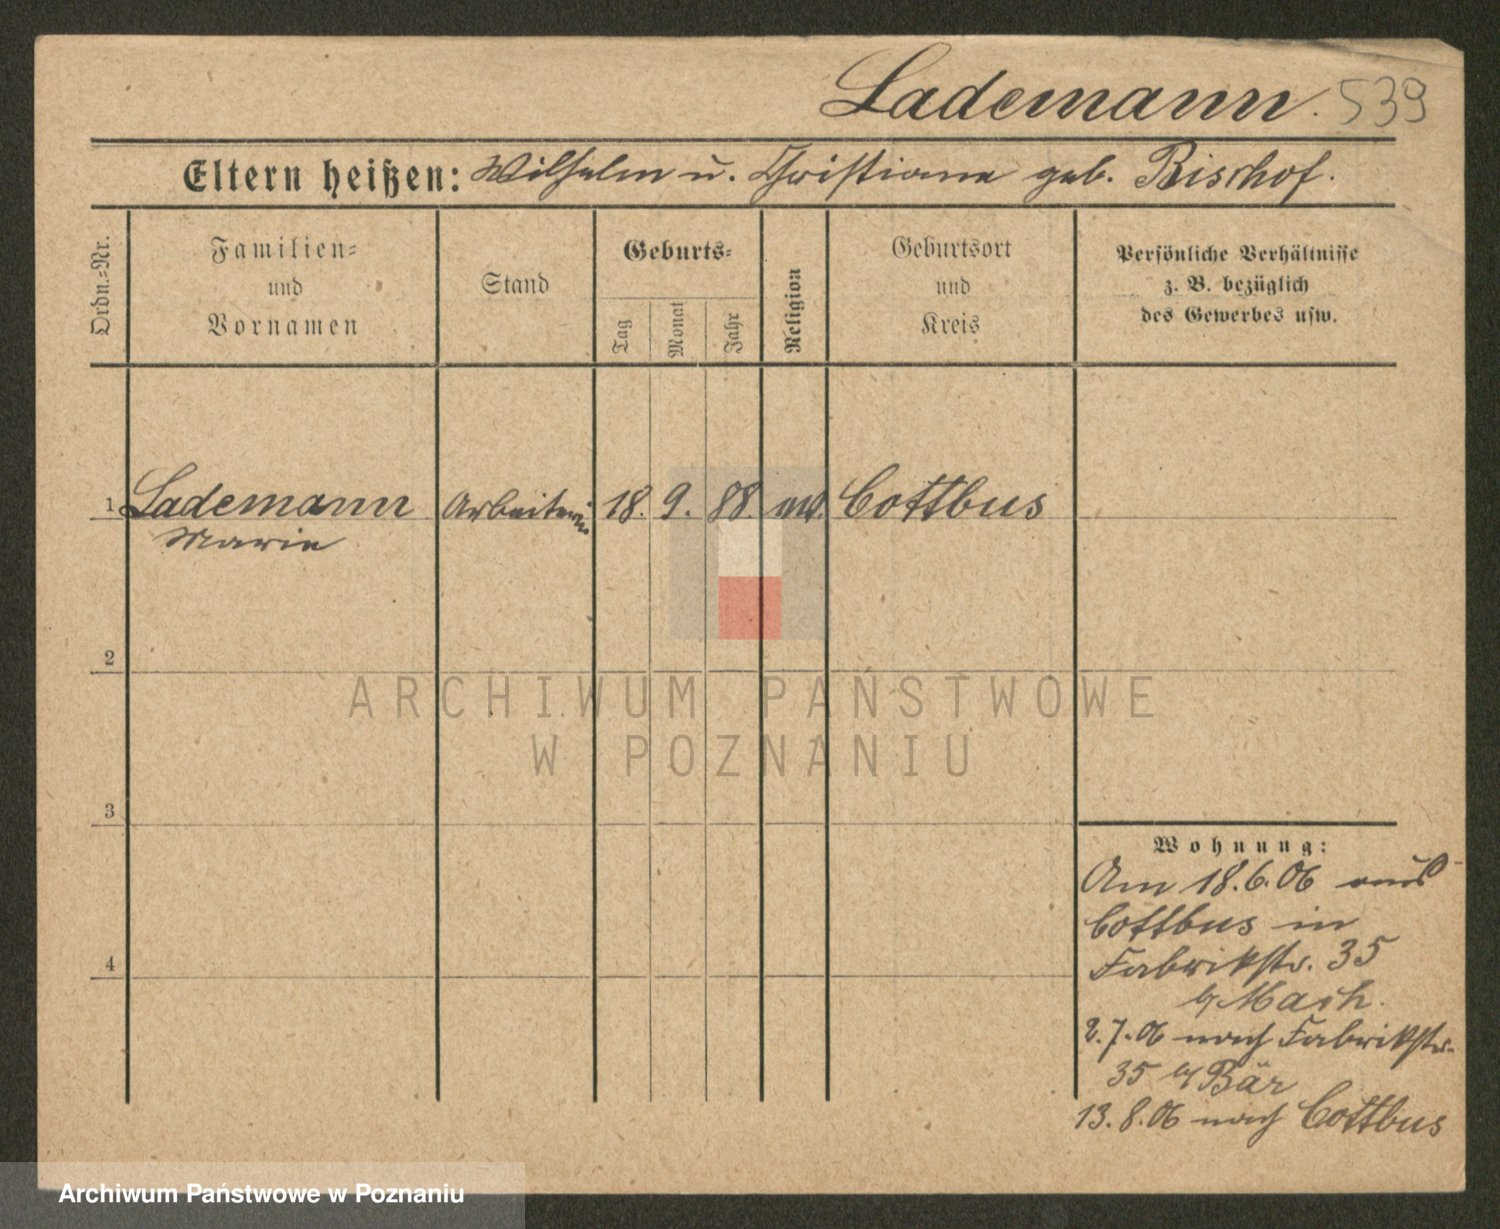 Lademann. 539
Eltern heißen: Wilhelm u. Christiane geb. Bischof.
Ordn.=Nr.
Familien=
und
Vornamen
Stand
Geburts=
Tag
Monat
Jahr
Religion
Geburtsort
und
Kreis
Persönliche Verhältnisse
z. B. bezüglich
des Gewerbes usw.
1 Lademann Arbeiterin 18. 9. 88. ev. Cottbus
Marie
2
ARCHIWUM PAŃSTWOWE
W POZNANIU
3
Wohnung:
Am 18.6.06 aus
Cottbus in
Fabrikstr. 35
4
b/ Mach.
2.7.06 nach Fabrikstr.
35 b/ Bär
13.8.06 nach Cottbus
Archiwum Państwowe w Poznaniu